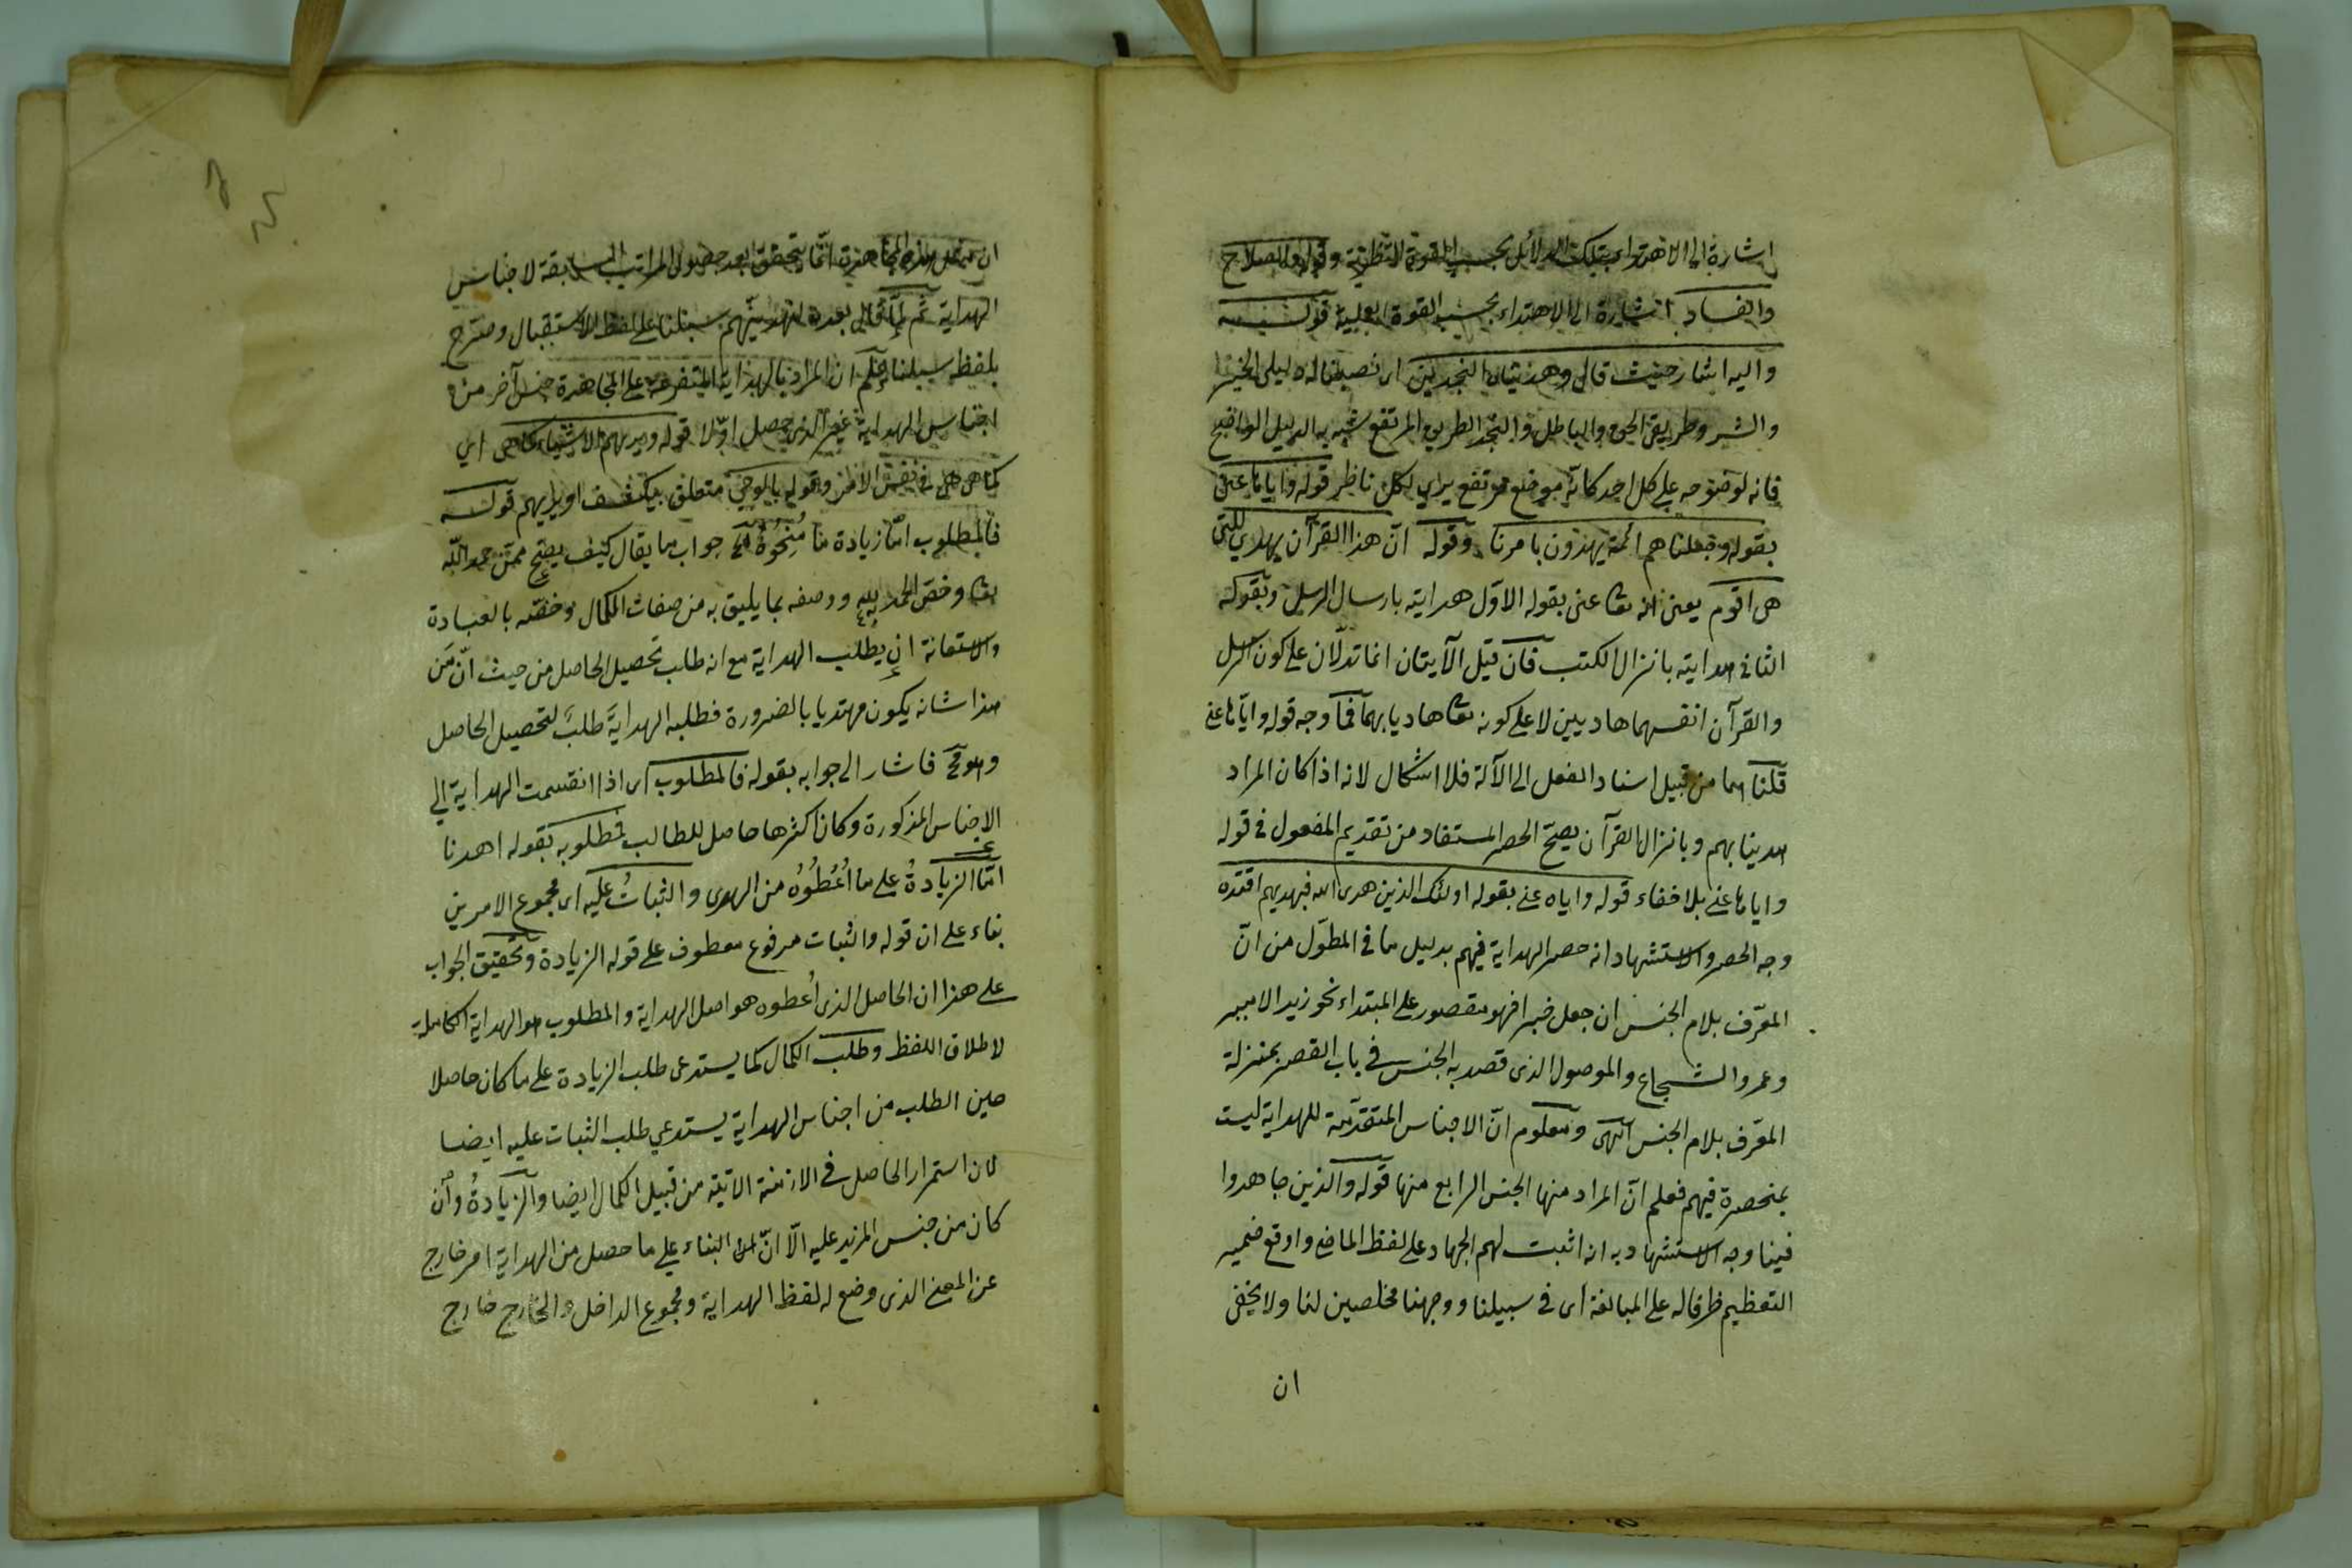 اشارة الى الاهتداء بتلك الدلائل بحسب القوة النظرية وقوله والصلاح
والفساد اشارة الى الاهتداء بحسب القوة العملية قوله
واليه اشار حيث قال وهديناه النجدين اى نصبنا له دليلى الخير
والشر وطريقى الحق والباطل والنجد الطريق المرتفع شبه به الدليل الواضح
فانه لوضوحه على كل احد كانه موضع مرتفع يراى لكل ناظر قوله واياها عنى
بقوله وجعلناهم ائمة يهدون بامرنا وقوله انّ هذا القرآن يهدي للتى
هى اقوم يعنى انه تعا عنى بقوله الاوّل هدايته بارسال الرسل وبقوله
الثانى هدايته بانزال الكتب فان قيل الآيتان انما تدلّان على كون الرسل
والقرآن انفسهما هاديين لا على كونه تعا هاديا بهما فما وجه قوله واياها عنى
قلنا هما من قبيل اسناد الفعل الى الآلة فلا اشكال لانه اذا كان المراد
هدينا بهم وبانزال القرآن يصحّ الحصر المستفاد من تقديم المفعول فى قوله
واياها عنى بلا خفاء قوله واياه عنى بقوله اولئك الذين هدى الله فبهديهم اقتده
وجه الحصر والاستشهاد انه حصر الهداية فيهم بدليل ما فى المطوّل من انّ
المعرّف بلام الجنس ان جعل خبرا فهو مقصور على المبتداء نحو زيد الامير
وعمرو الشجاع والموصول الذى قصد به الجنس فى باب القصر بمنزلة
المعرّف بلام الجنس انتهى ومعلوم انّ الاجناس المتقدّمة للهداية ليست
بمنحصرة فيهم فعلم انّ المراد منها الجنس الرابع منها قوله والذين جاهدوا
فينا وجه الاستشهاد به انه اثبت لهم الجهاد على لفظ الماضى واوقع ضمير
التعظيم ظرفا له على المبالغة اى فى سبيلنا ووجهنا مخلصين لنا ولا يخفى
ان
ان مثل هذه المجاهدة انّما يتحقق بعد حصول المراتب السابقة لاجناس
الهداية ثم لمّا قال بعده لنهدينّهم سبلنا على لفظ الاستقبال وصرّح
بلفظ سبيلنا علم ان المراد بالهداية المتفرعة على المجاهدة جنس آخر من
اجناس الهداية غير الذى حصل اوّلا قوله ويريهم الاشياء كما هى اى
كما هى فى نفس الامر وقوله بالوحى متعلق بيكشف او يريهم قوله
فالمطلوب امّا زيادة ما مُنِحُوْهُ الخ جواب ما يقال كيف يصحّ ممّن حمد الله
تعا وخصّ الحمد به ووصفه بما يليق به من صفات الكمال وخصّه بالعبادة
والاستعانة ان يطلب الهداية مع انه طلب تحصيل الحاصل من حيث انّ مَن
هذا شانه يكون مهتديا بالضرورة فطلبه الهداية طلبٌ لتحصيل الحاصل
وهو مح فاشار الى جوابه بقوله فالمطلوب اى اذا انقسمت الهداية الى
الاجناس المذكورة وكان اكثرها حاصل للطالب فمطلوبه بقوله اهدنا
امّا الزيادةُ على ما اُعْطُوْهُ من الهدى والثباتُ عليه اى مجموع الامرين
بناء على ان قوله والثبات مرفوع معطوف على قوله الزيادة وتحقيق الجواب
على هذا ان الحاصل الذى اُعطوه هو اصل الهداية والمطلوب هو الهداية الكاملة
لاطلاق اللفظ وطلب الكمال كما يستدعى طلب الزيادة على ما كان حاصلا
حين الطلب من اجناس الهداية يستدعي طلب الثبات عليه ايضا
لان استمرار الحاصل فى الازمنة الاتية من قبيل الكمال ايضا والزيادةُ وان
كان من جنس المزيد عليه الّا انّ البناء على ما حصل من الهداية امر خارج
عن المعنى الذى وضع له لفظ الهداية ومجموع الداخل والخارج خارج